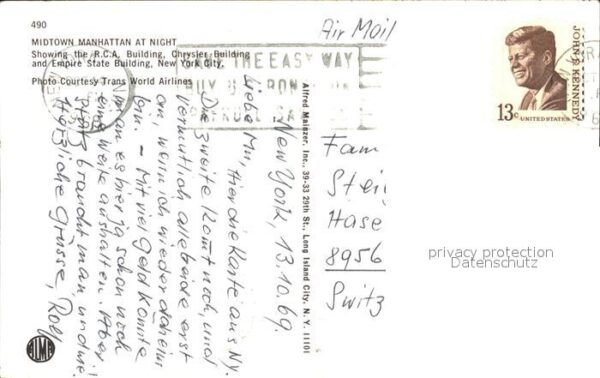 490
MIDTOWN MANHATTAN AT NIGHT
Showing the R.C.A. Building, Chrysler Building
and Empire State Building, New York City.
Photo Courtesy Trans World Airlines
Air Mail
THE EASY WAY
JOHN F. KENNEDY
13c
UNITED STATES
New York, 13.10.69.
Liebe Mu, Hier die Karte aus N.Y.
Die zweite kommt noch, und
vermutlich alle beide erst
an, wenn ich wieder daheim
bin. – Mit viel Geld könnte
man es hier ja schon noch
eine Weile aushalten. Aber
stets braucht man und wie.
Herzliche Grüsse, Rolf
Alfred Mainzer, Inc., 39-33 29th St., Long Island City, N. Y. 11101
Fam
Stei
Hase
8956
Switz
privacy protection
Datenschutz